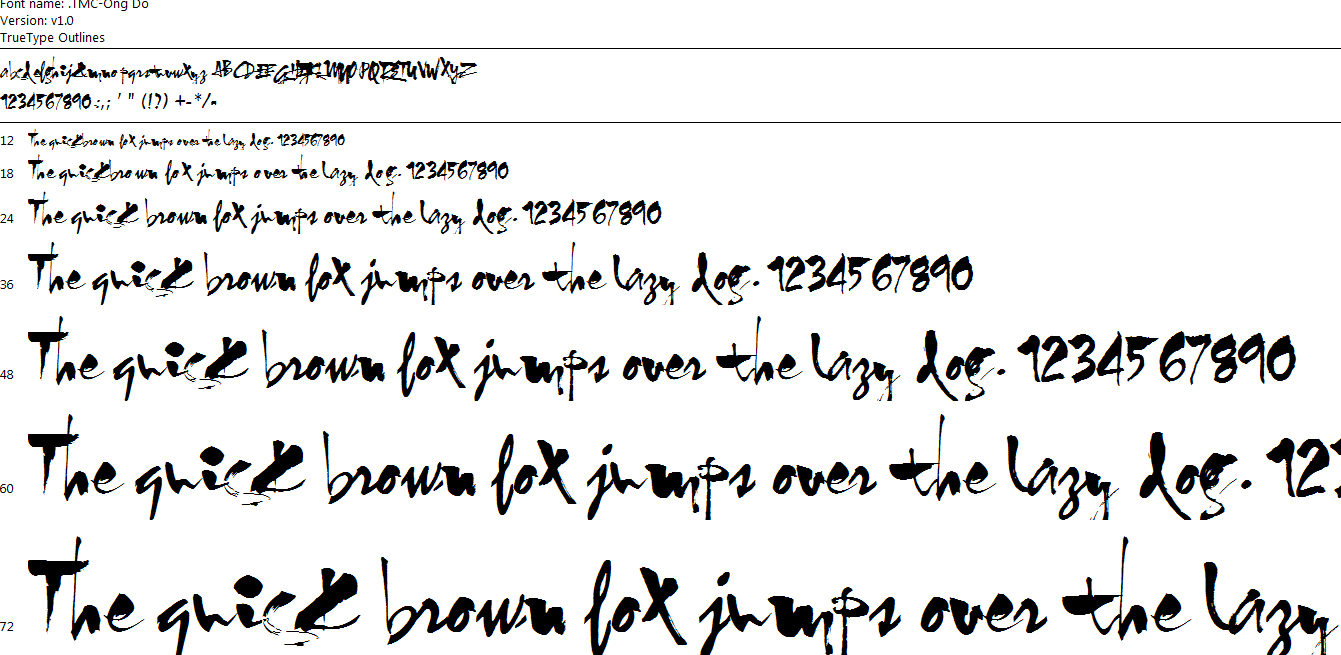 Font name: .TMC-Ong Do
Version: v1.0
TrueType Outlines
abcdefghijklmnopqrstuvwxyz ABCDEFGHIJKLMNOPQRSTUVWXYZ
1234567890.:,; ' " (!?) +-*/=
12 The quick brown fox jumps over the lazy dog. 1234567890
18 The quick brown fox jumps over the lazy dog. 1234567890
24 The quick brown fox jumps over the lazy dog. 1234567890
36 The quick brown fox jumps over the lazy dog. 1234567890
48 The quick brown fox jumps over the lazy dog. 1234567890
60 The quick brown fox jumps over the lazy dog. 12
72 The quick brown fox jumps over the lazy